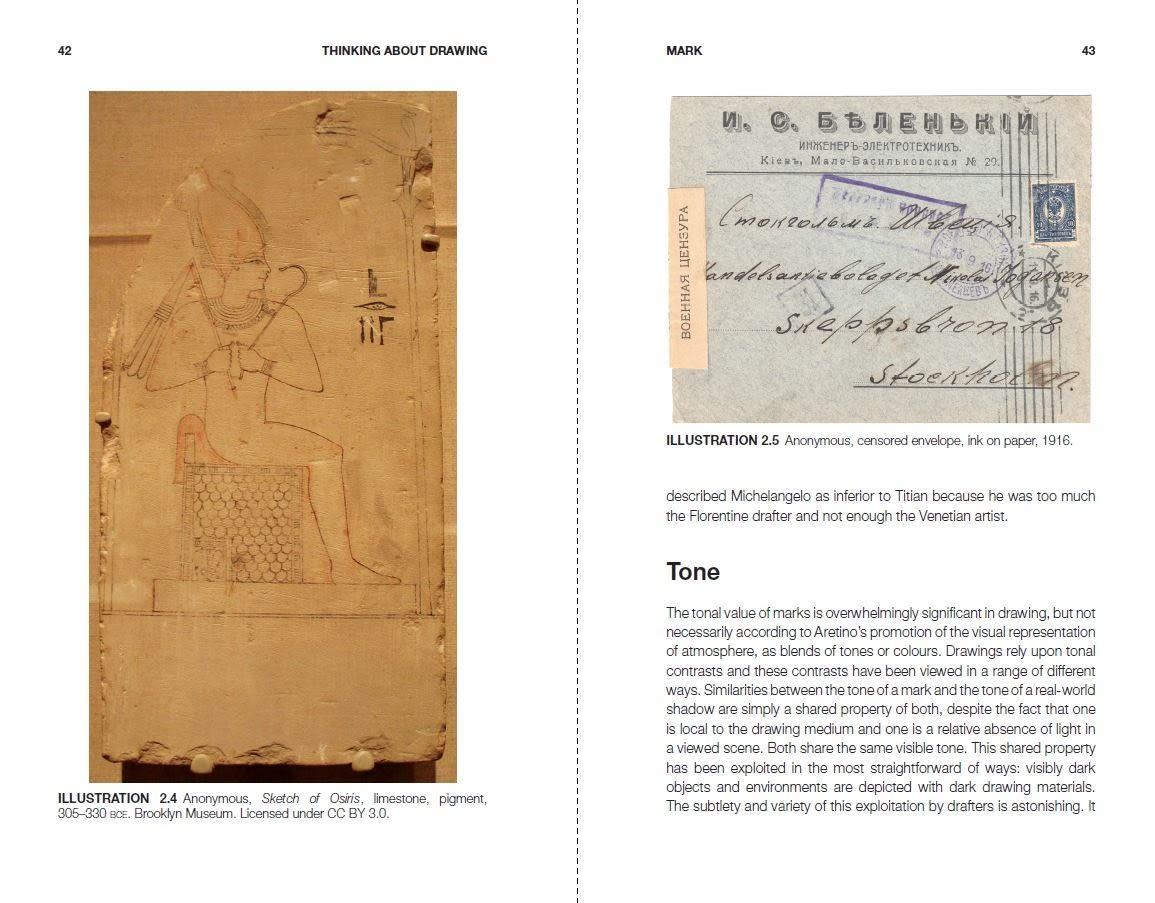 42 THINKING ABOUT DRAWING
ILLUSTRATION 2.4 Anonymous, Sketch of Osiris, limestone, pigment,
305–330 BCE. Brooklyn Museum. Licensed under CC BY 3.0.
MARK 43
И. С. БѢЛЕНЬКІЙ
ИНЖЕНЕРЪ-ЭЛЕКТРОТЕХНИКЪ.
Кіевъ, Мало-Васильковская № 29.
ВОЕННАЯ ЦЕНЗУРА
Стокгольмъ. Швеція.
Handelsaktiebolaget Nikolai
Skeppsbron 18
Stockholm.
ILLUSTRATION 2.5 Anonymous, censored envelope, ink on paper, 1916.
described Michelangelo as inferior to Titian because he was too much
the Florentine drafter and not enough the Venetian artist.
Tone
The tonal value of marks is overwhelmingly significant in drawing, but not
necessarily according to Aretino’s promotion of the visual representation
of atmosphere, as blends of tones or colours. Drawings rely upon tonal
contrasts and these contrasts have been viewed in a range of different
ways. Similarities between the tone of a mark and the tone of a real-world
shadow are simply a shared property of both, despite the fact that one
is local to the drawing medium and one is a relative absence of light in
a viewed scene. Both share the same visible tone. This shared property
has been exploited in the most straightforward of ways: visibly dark
objects and environments are depicted with dark drawing materials.
The subtlety and variety of this exploitation by drafters is astonishing. It